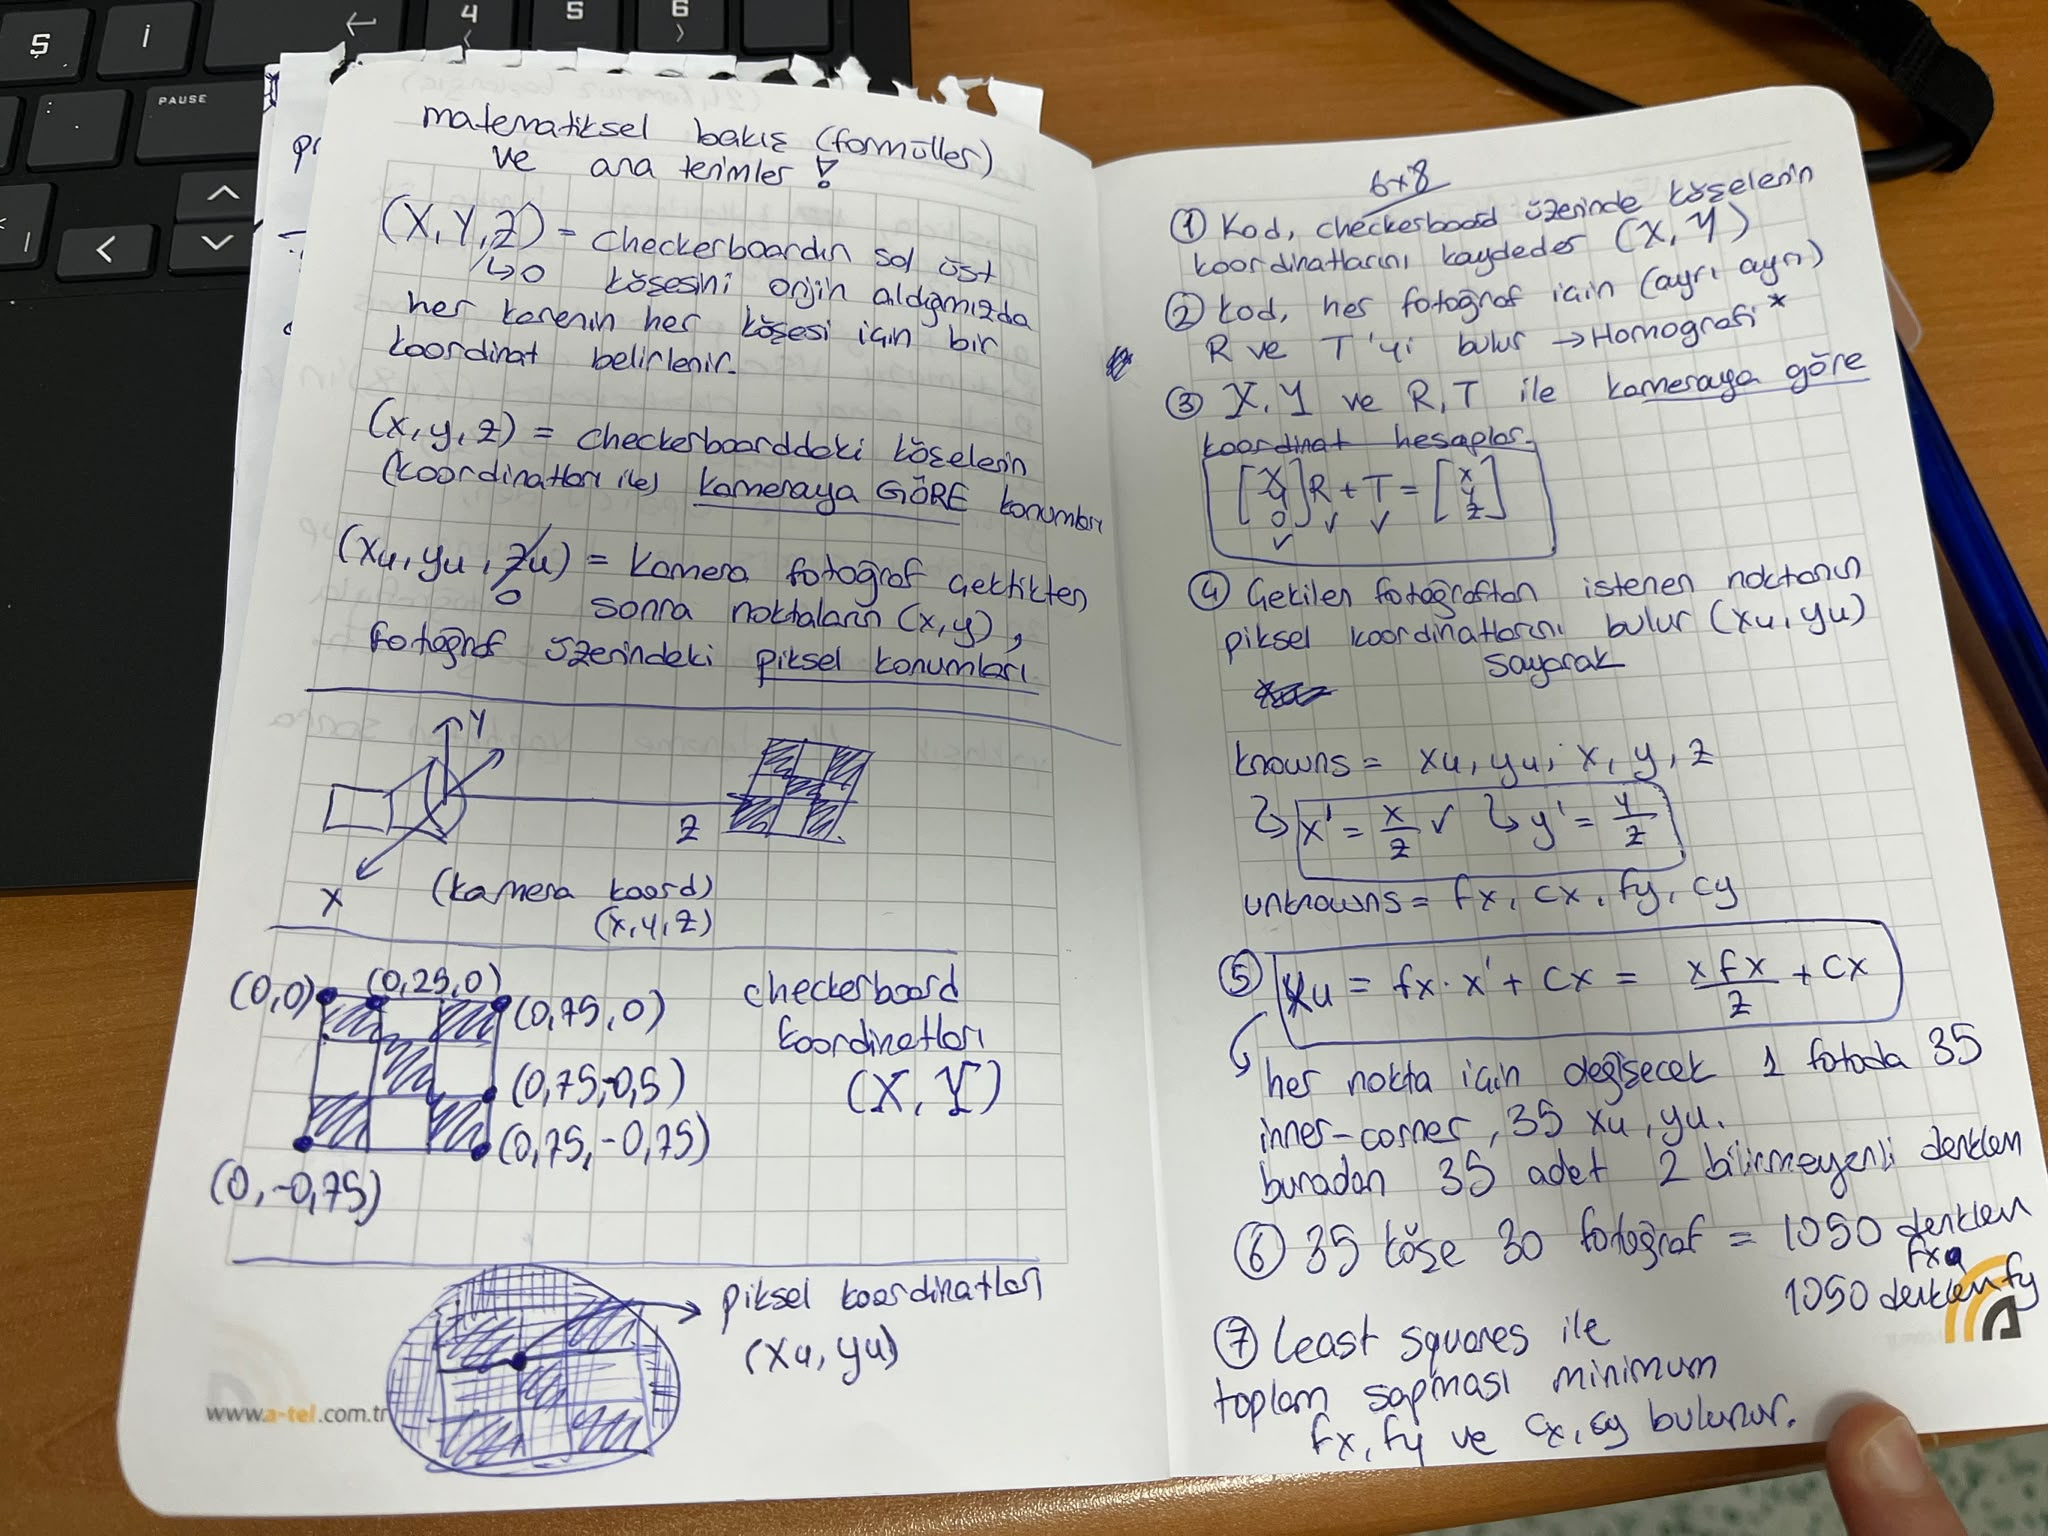 Ş
İ
4
5
6
PAUSE
matematiksel bakış (formüller)
ve ana terimler !
(X, Y, Z) = checkerboardın sol üst
↳0 köşesini orijin aldığımızda
her karenin her köşesi için bir
koordinat belirlenir.
(x, y, z) = checkerboarddaki köşelerin
(koordinatları ile) kameraya GÖRE konumları
(xu, yu, zu) = kamera fotoğraf çektikten
0 sonra noktaların (x,y),
fotoğraf üzerindeki piksel konumları
Y
Z
X
(kamera koord)
(x,y,z)
(0,0) (0,25,0)
(0,75,0)
checkerboard
koordinatları
(X, Y)
(0,75,-0,5)
(0,75,-0,75)
(0,-0,75)
piksel koordinatları
(xu, yu)
www.a-tel.com.tr
6x8
① Kod, checkerboard üzerinde köşelerin
koordinatlarını kaydeder (X, Y)
② Kod, her fotoğraf için (ayrı ayrı)
R ve T'yi bulur → Homografi *
③ X, Y ve R, T ile kameraya göre
koordinat hesaplar.
[X Y 0] R + T = [x y z]
✓ ✓ ✓
④ Çekilen fotoğraftan istenen noktanın
piksel koordinatlarını bulur (xu, yu)
sayarak
knowns = xu, yu, x, y, z
↳ x' = x/z ✓ ↳ y' = y/z
unknowns = fx, cx, fy, cy
⑤ xu = fx. x' + cx = xfx/z + cx
↳ her nokta için değişecek 1 fotoda 35
inner-corner, 35 xu, yu.
buradan 35 adet 2 bilinmeyenli denklem
⑥ 35 köşe 30 fotoğraf = 1050 denklem
fx
1050 denklem fy
⑦ Least squares ile
toplam sapması minimum
fx, fy ve cx, cy bulunur.